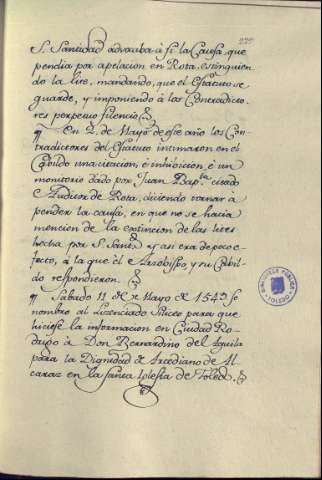 S. Santidad advocaba à si la Causa, que
pendia por apelacion en Rota, extinguien
do la lite, mandando, que el Estatuto se
guarde, y imponiendo à los Contradicto
res perpetuo silencio.
¶ En 2. de Mayo de este año los Con-
tradictores del Estatuto intimaron en el
Cabildo una citacion, è inhibicion, è un
monitorio dado por Juan Bap.ta citado
è Auditor de Rota, diciendo tornar a
pender la causa, en que no se hacia
mencion de la extincion de las lites
hecha por S. Sant.d y asi era de poco e-
fecto, à la que el Arzobispo, y su Cabil-
do respondieron.
¶ Sabado 11 de Mayo de 1549 se
nombro al Licenciado para que
hiciese la informacion en Ciudad Ro-
drigo à Don Bernardino del Aguila
para la Dignidad de Arcediano de Al
caraz en la santa Iglesia de Toledo.
BIBLIOTECA PUBLICA
TOLEDO